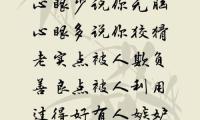 心眼少说你无脑
心眼多说你狡猾
老实点被人欺负
善良点被人利用
过得好有人嫉妒